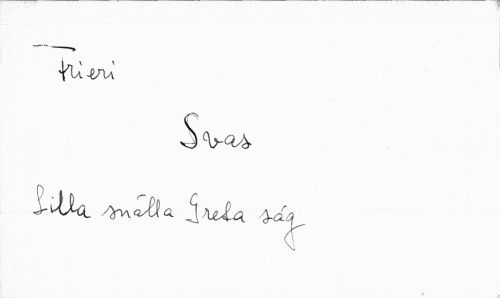 Frieri
Svar
Lilla snälla Greta säg